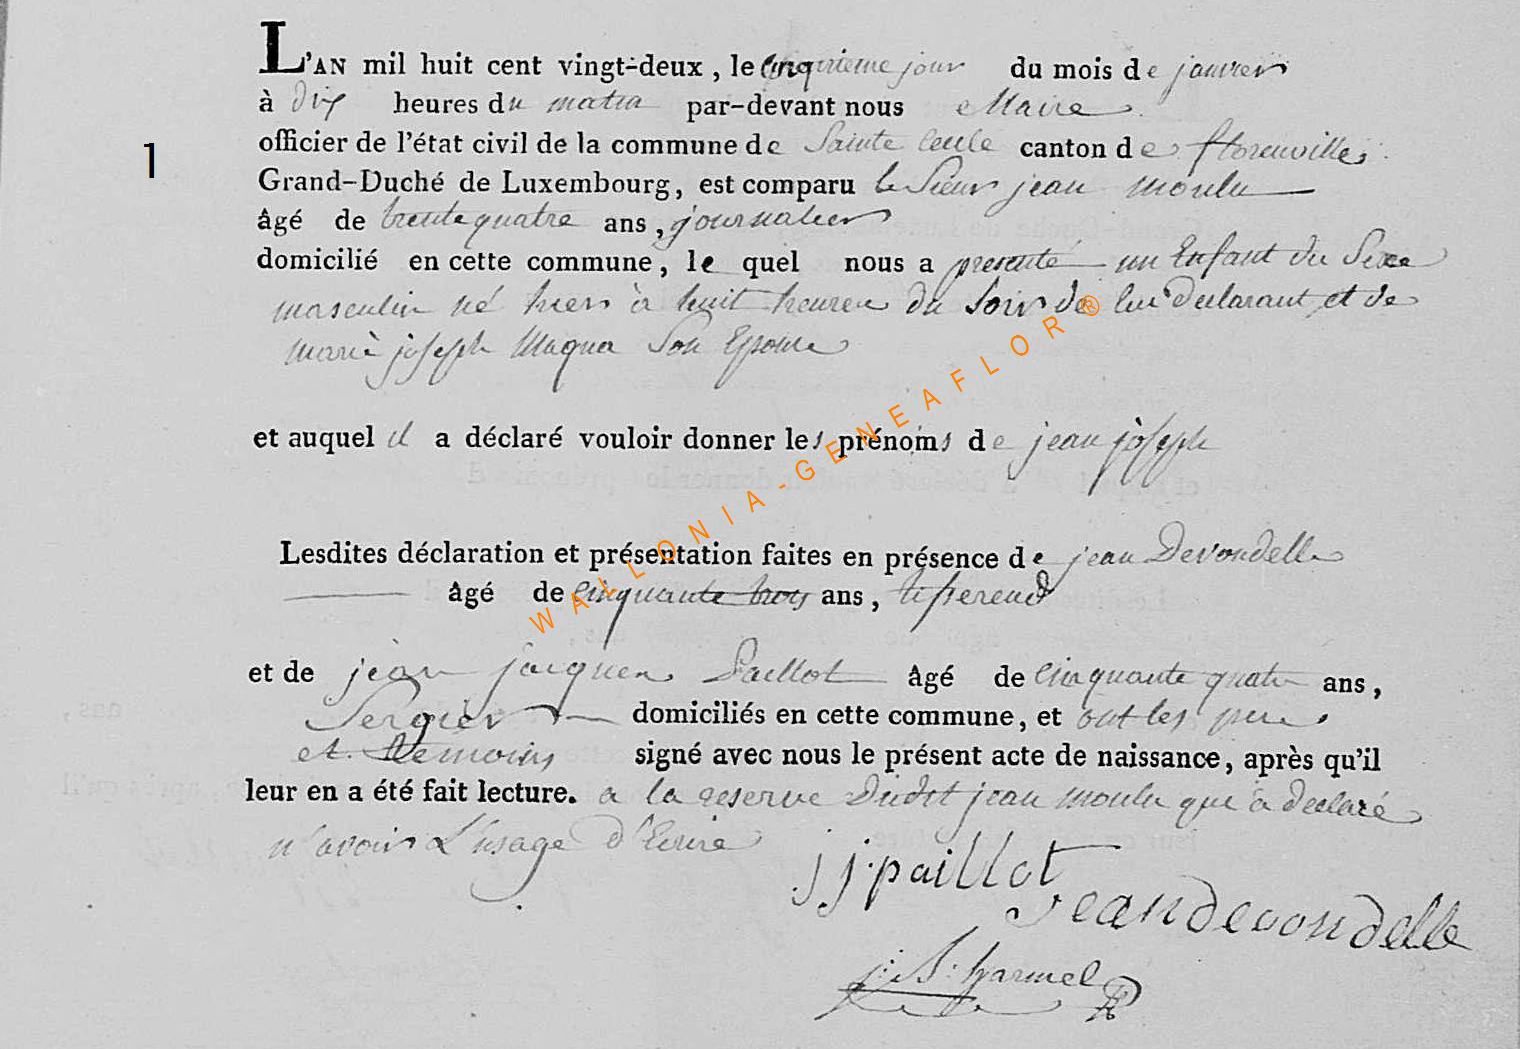 L'AN mil huit cent vingt-deux, le cinquieme jour du mois de janvier
à dix heures du matin par-devant nous Maire
officier de l'état civil de la commune de Sainte Cecile canton de florenville
1
Grand-Duché de Luxembourg, est comparu le Sieur jean moulu
âgé de trente quatre ans, journalier
domicilié en cette commune, le quel nous a presenté un Enfant du Sexe
masculin né hier à huit heures du Soir de lui Declarant et de
marie joseph Maqua Son Epouse
et auquel il a déclaré vouloir donner les prénoms de jean joseph
Lesdites déclaration et présentation faites en présence de jean Devondelle
âgé de cinquante trois ans, tisserend
et de jean jacques Paillot âgé de cinquante quatre ans,
Sergier domiciliés en cette commune, et ont les pere
et temoins signé avec nous le présent acte de naissance, après qu'il
leur en a été fait lecture. a la reserve Dudit jean moulu qui a declaré
n'avoir L'usage d'Ecrire
j j paillot
Jean devondelle
j: S: harmel
WALLONIA-GENEAFLOR®